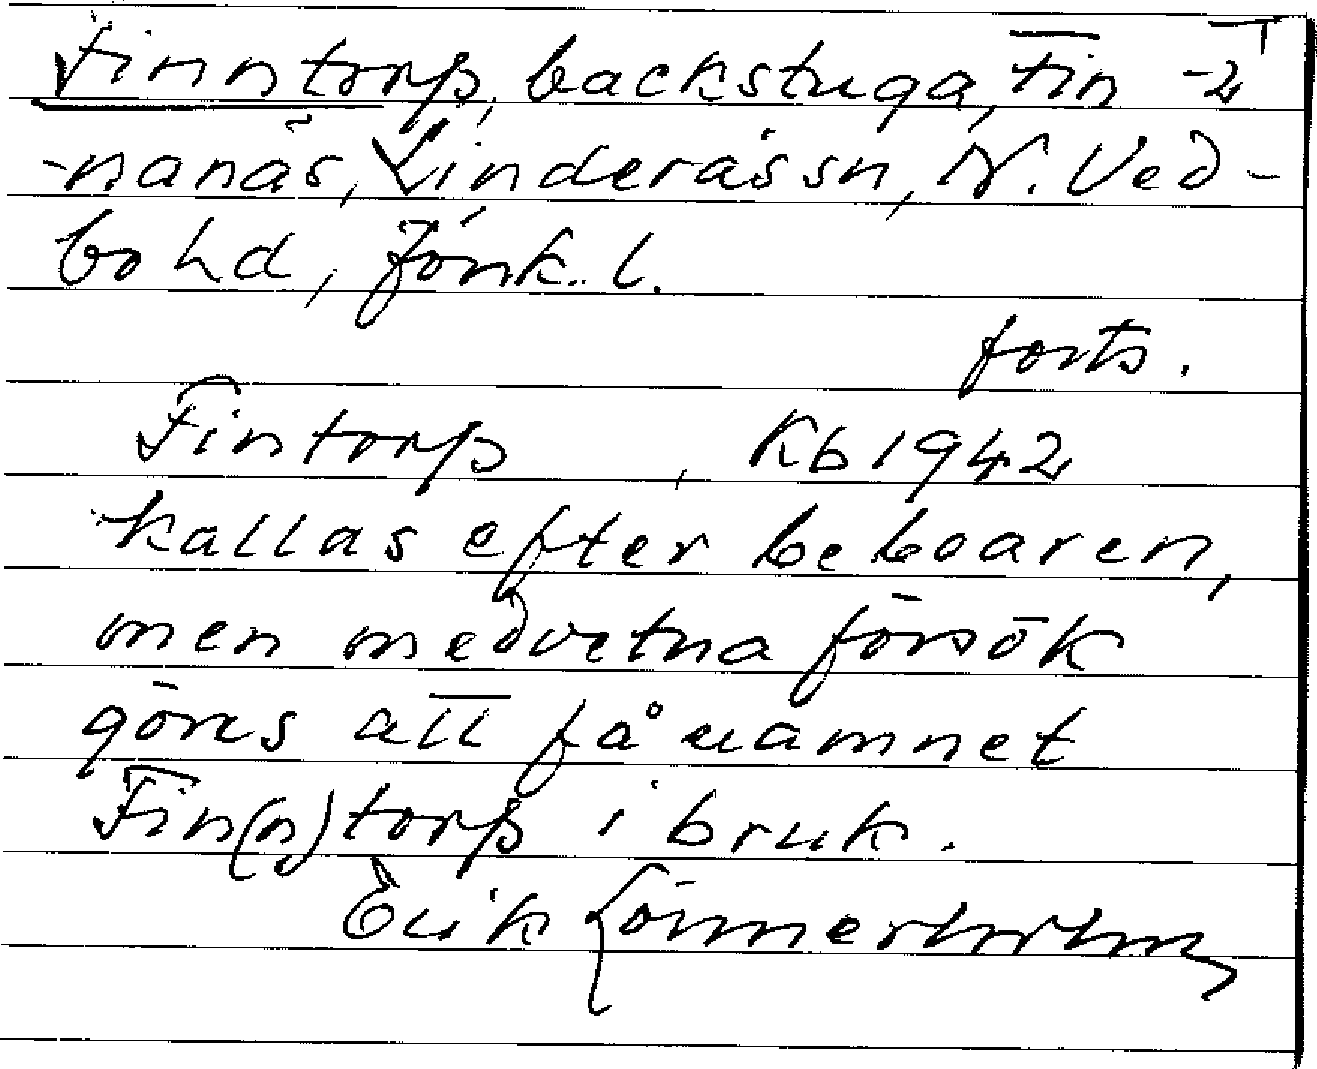 Finntorp, backstuga, Fin- 2
-nanäs, Linderås sn, N. Ved-
bo hd, Jönk. l.
forts.
Fintorp , Kb 1942
kallas efter beboaren,
men medvetna försök
göres att få namnet
Fin(n)torp i bruk.
Erik Lönnerholm